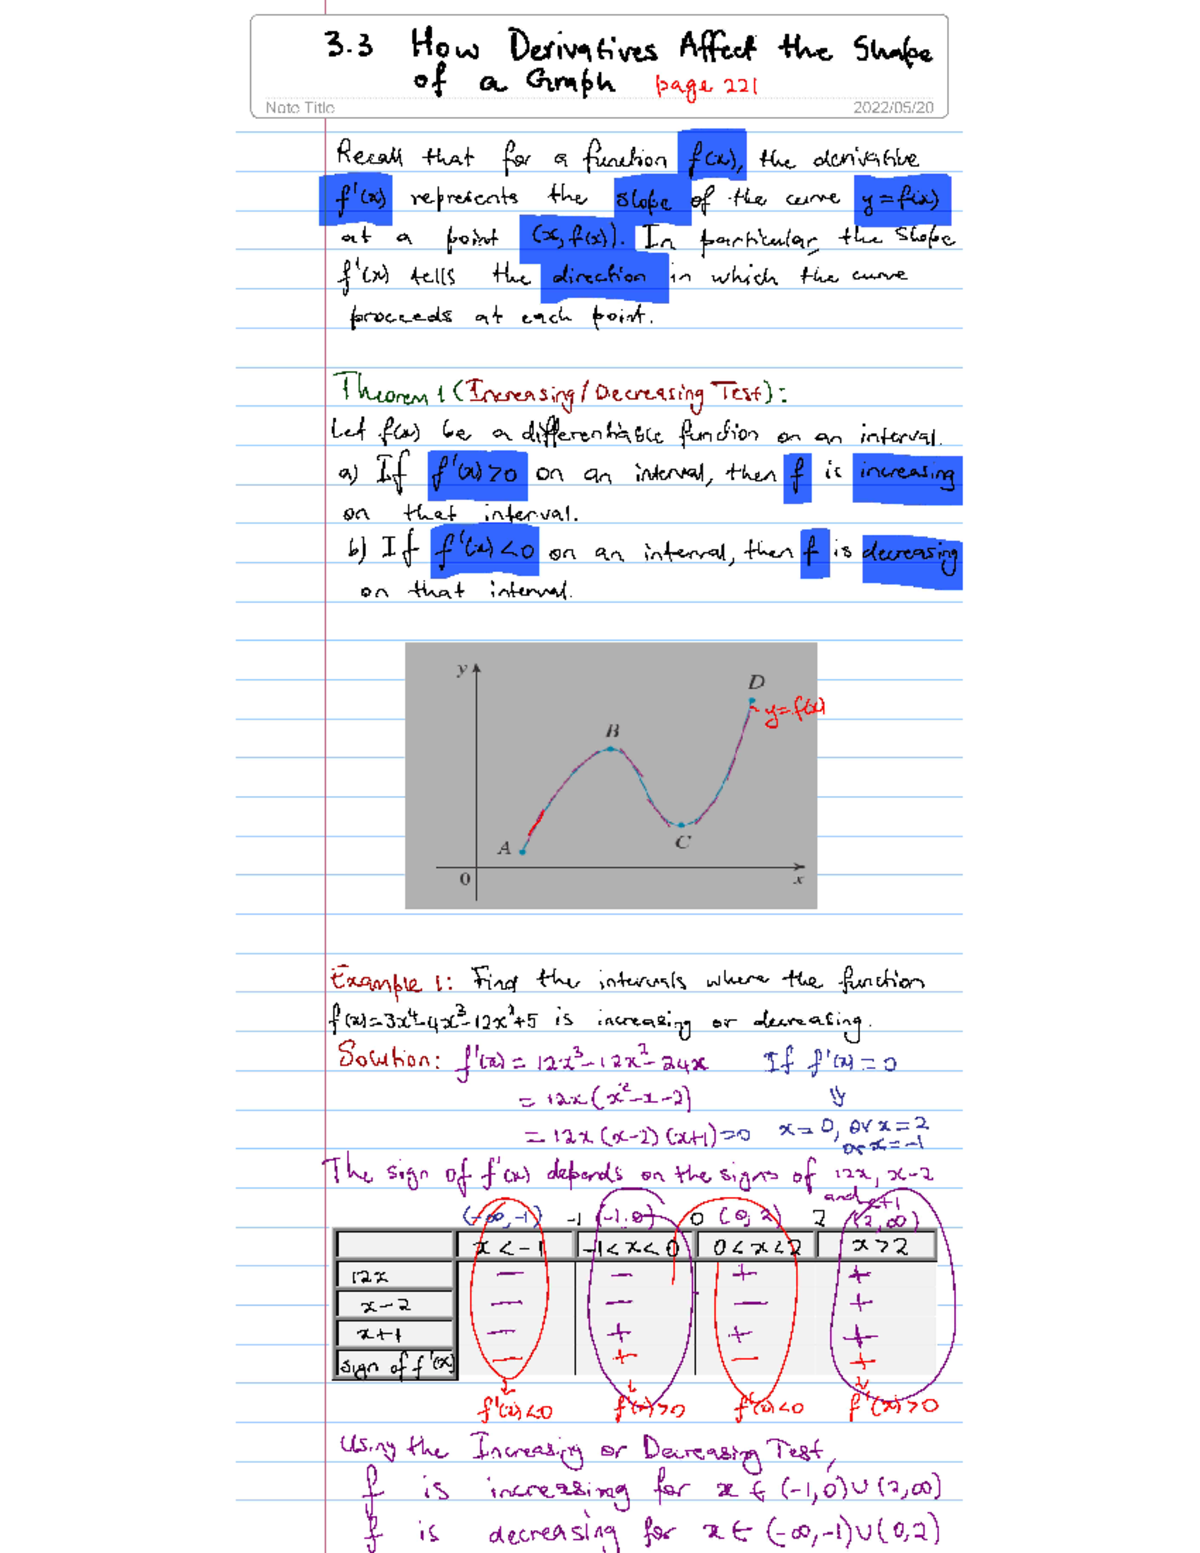 3.3 How Derivatives Affect the Shape
of a Graph page 221
Note Title 2022/05/20
Recall that for a function f(x), the derivative
f'(x) represents the slope of the curve y=f(x)
at a point (x, f(x)). In particular, the slope
f'(x) tells the direction in which the curve
proceeds at each point.
Theorem 1 (Increasing/Decreasing Test):
Let f(x) be a differentiable function on an interval.
a) If f'(x)>0 on an interval, then f is increasing
on that interval.
b) If f'(x)<0 on an interval, then f is decreasing
on that interval.
y
D
y=f(x)
B
A
C
0
x
Example 1: Find the intervals where the function
f(x)=3x⁴-4x³-12x²+5 is increasing or decreasing.
Solution: f'(x)= 12x³-12x²-24x If f'(x)=0
= 12x(x²-x-2) ⇓
= 12x(x-2)(x+1)=0 x=0, or x=2
or x=-1
The sign of f'(x) depends on the signs of 12x, x-2
and x+1
(-∞,-1) -1 (-1,0) 0 (0,2) 2 (2,∞)
x<-1 -1<x<0 0<x<2 x>2
12x − − + +
x-2 − − − +
x+1 − + + +
sign of f'(x) − + − +
f'(x)<0 f'(x)>0 f'(x)<0 f'(x)>0
Using the Increasing or Decreasing Test,
f is increasing for x ∈ (-1,0)∪(2,∞)
f is decreasing for x ∈ (-∞,-1)∪(0,2)